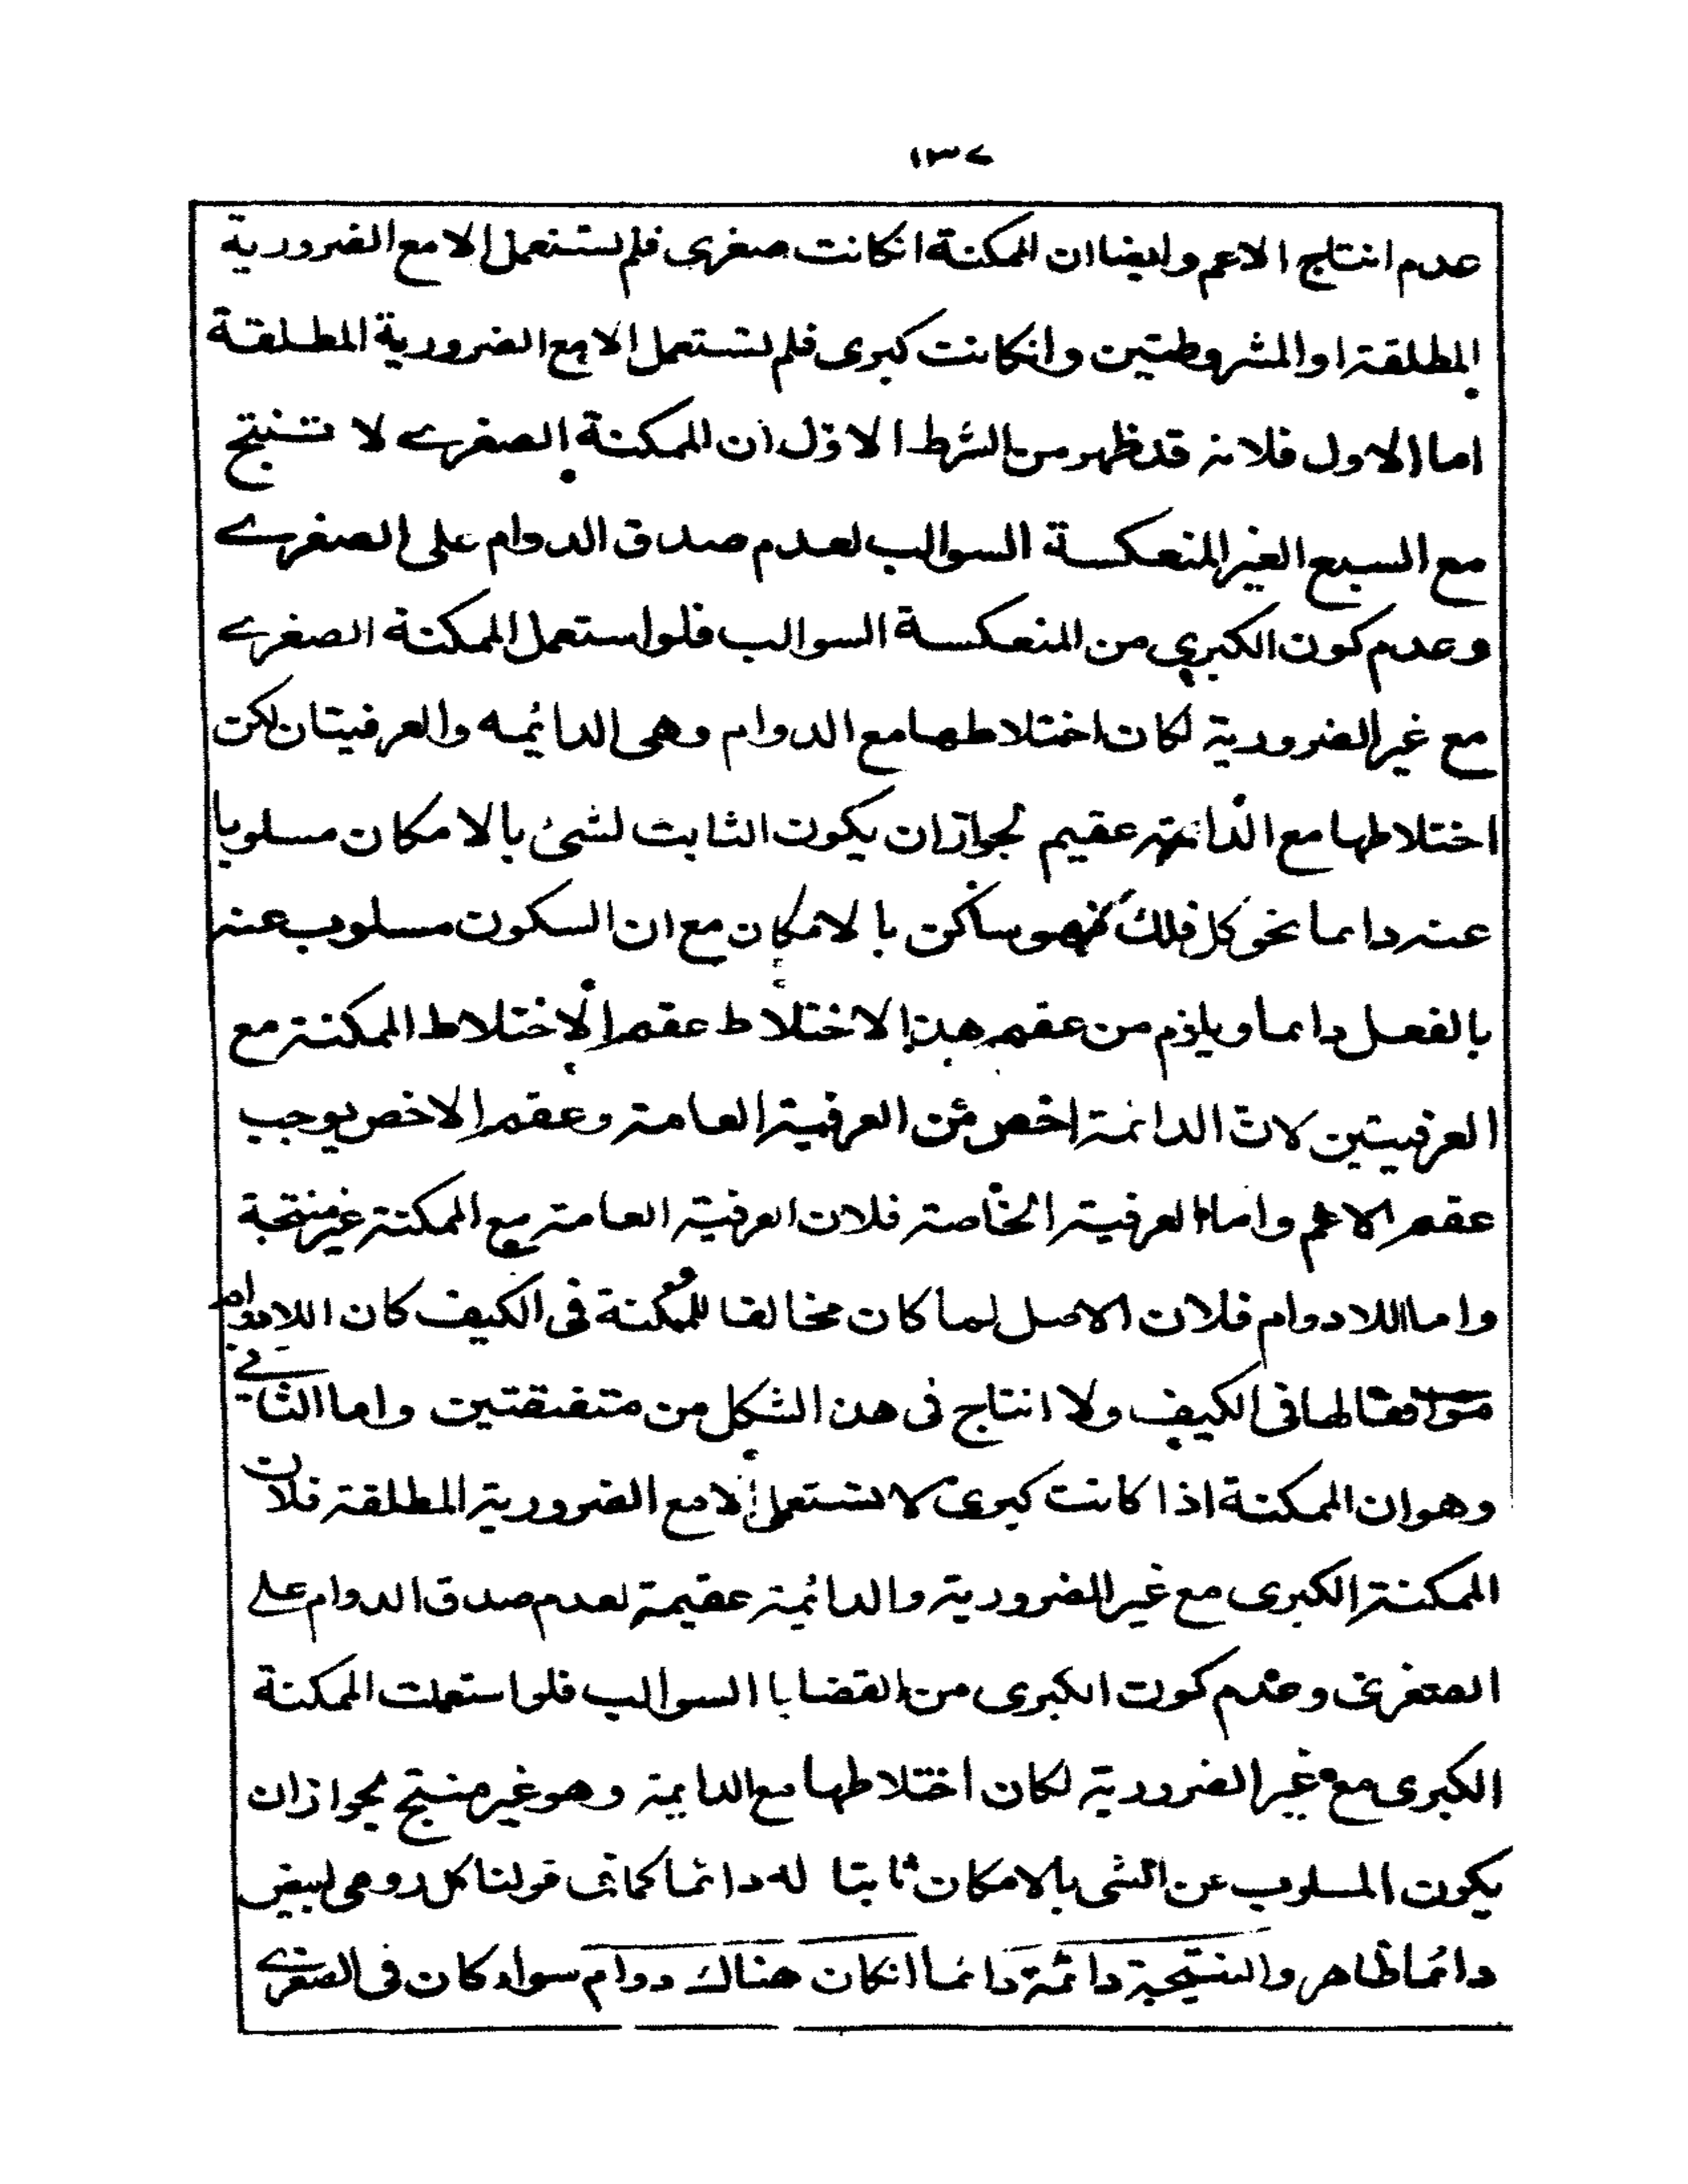 ١٣٧
عدم انتاج الاعم وايضا ان الممكنة انكانت صغرى فلم تستعمل الا مع الضرورية
المطلقة او المشروطتين وانكانت كبرى فلم تستعمل الا مع الضرورية المطلقة
اما الاول فلانه قد ظهر من الشرط الاوّل ان الممكنة الصغرے لا تنتج
مع السبع الغير المنعكسة السوالب لعدم صدق الدوام على الصغرے
وعدم كون الكبرى من المنعكسة السوالب فلو استعمل الممكنة الصغرے
مع غير الضرورية لكان اختلاطها مع الدوام وهى الدائيمه والعرفيتان لكن
اختلاطها مع الدائمة عقيم لجواز ان يكون الثابت لشئ بالامكان مسلوبا
عنه دايما نحو كل فلك فهو ساكن بالامكان مع ان السكون مسلوب عنه
بالفعل دايما ويلزم من عقم هذا الاختلاط عقم الاختلاط الممكنة مع
العرفيتين لان الدائمة اخص من العرفية العامة وعقم الاخص يوجب
عقم الاعم واما العرفية الخاصة فلان العرفية العامة مع الممكنة غير منتجة
واما اللادوام فلان الاصل لما كان مخالفا للممكنة فى الكيف كان اللادوام
موافقا لها فى الكيف ولا انتاج فى هذا الشكل من متفقتين واما الثانے
وهو ان الممكنة اذا كانت كبرى لا تستعمل الا مع الضرورية المطلقة فلان
الممكنة الكبرى مع غير الضرورية والدائيمة عقيمة لعدم صدق الدوام علے
الصغرى وعدم كون الكبرى من القضايا السوالب فلو استعملت الممكنة
الكبرى مع غير الضرورية لكان اختلاطها مع الدايمة وهو غير منتج لجواز ان
يكون المسلوب عن الشى بالامكان ثابتا له دائما كما فى قولنا كل رومى ابيض
دائما ظاهر والنتيجة دائمة دائما انكان هناك دوام سواء كان فى الصغرے